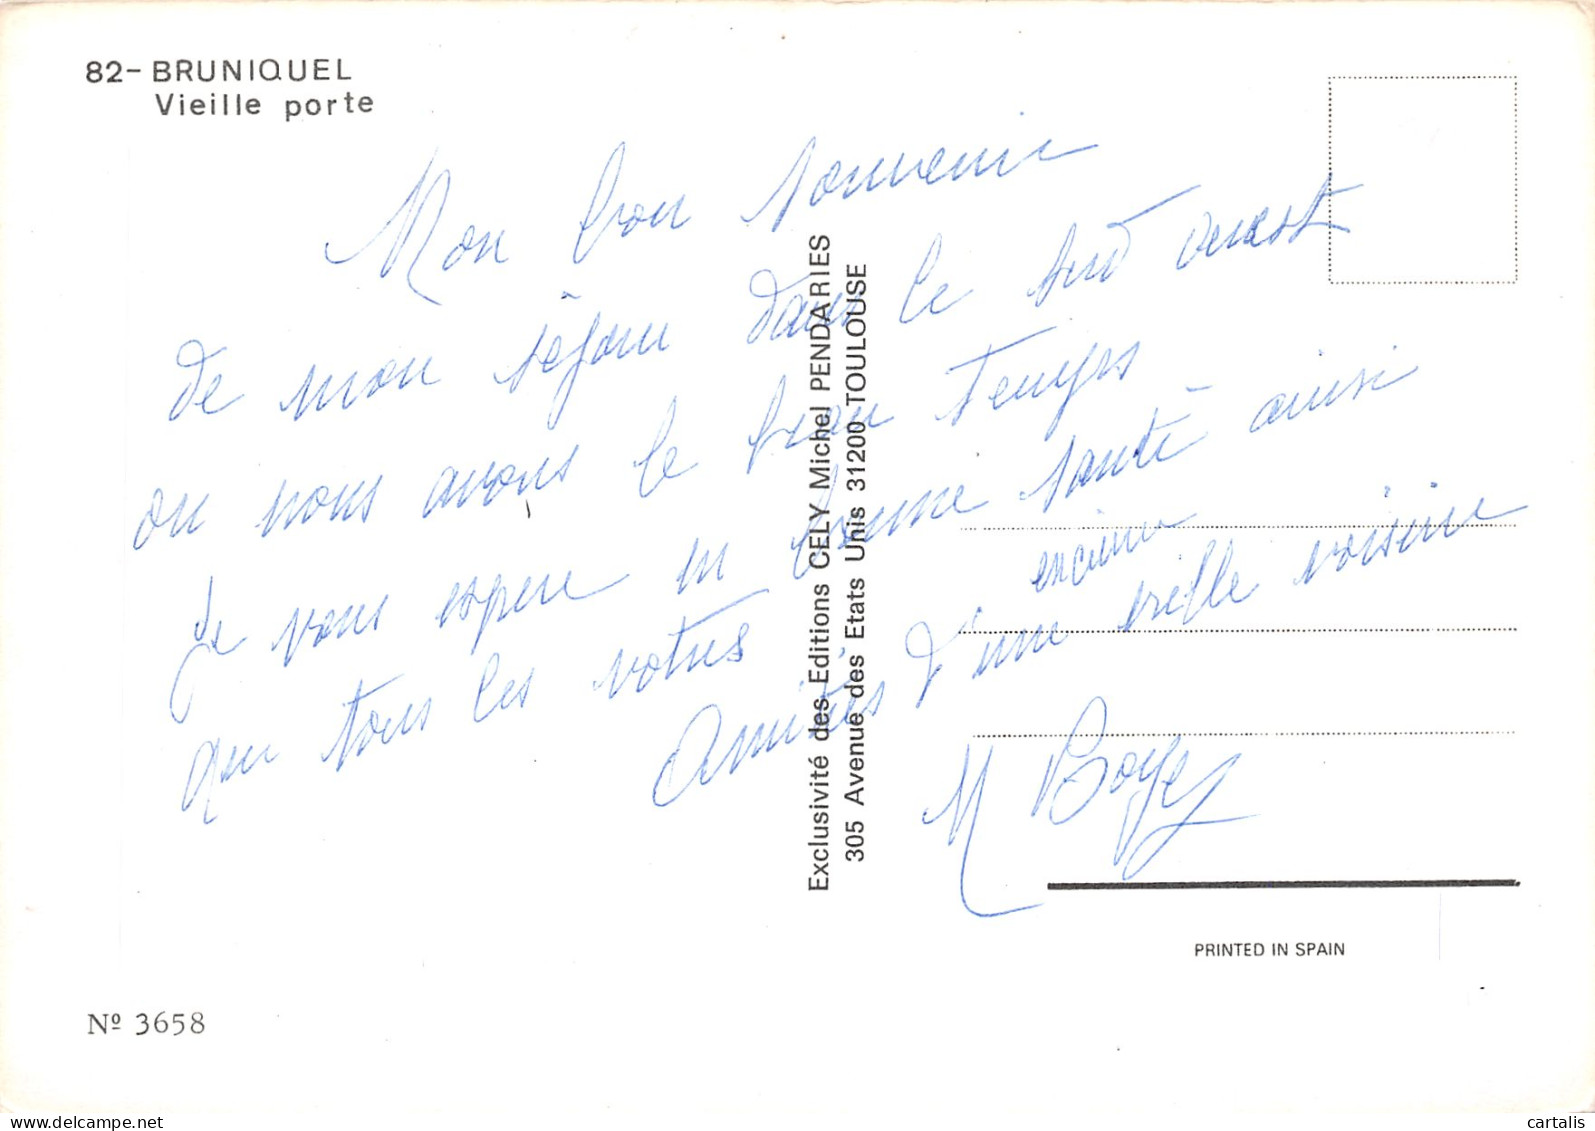 82- BRUNIQUEL
Vieille porte
Mon bon souvenir
de mon séjour dans le sud ouest
ou nous avons le beau temps
Je vous espere en bonne santé ainsi
que tous les votres
Amitiés d'une vieille voisine
M Boyer
Exclusivité des Editions CELY Michel PENDARIES
305 Avenue des Etats Unis 31200 TOULOUSE
PRINTED IN SPAIN
Nº 3658
delcampe.net
cartalis